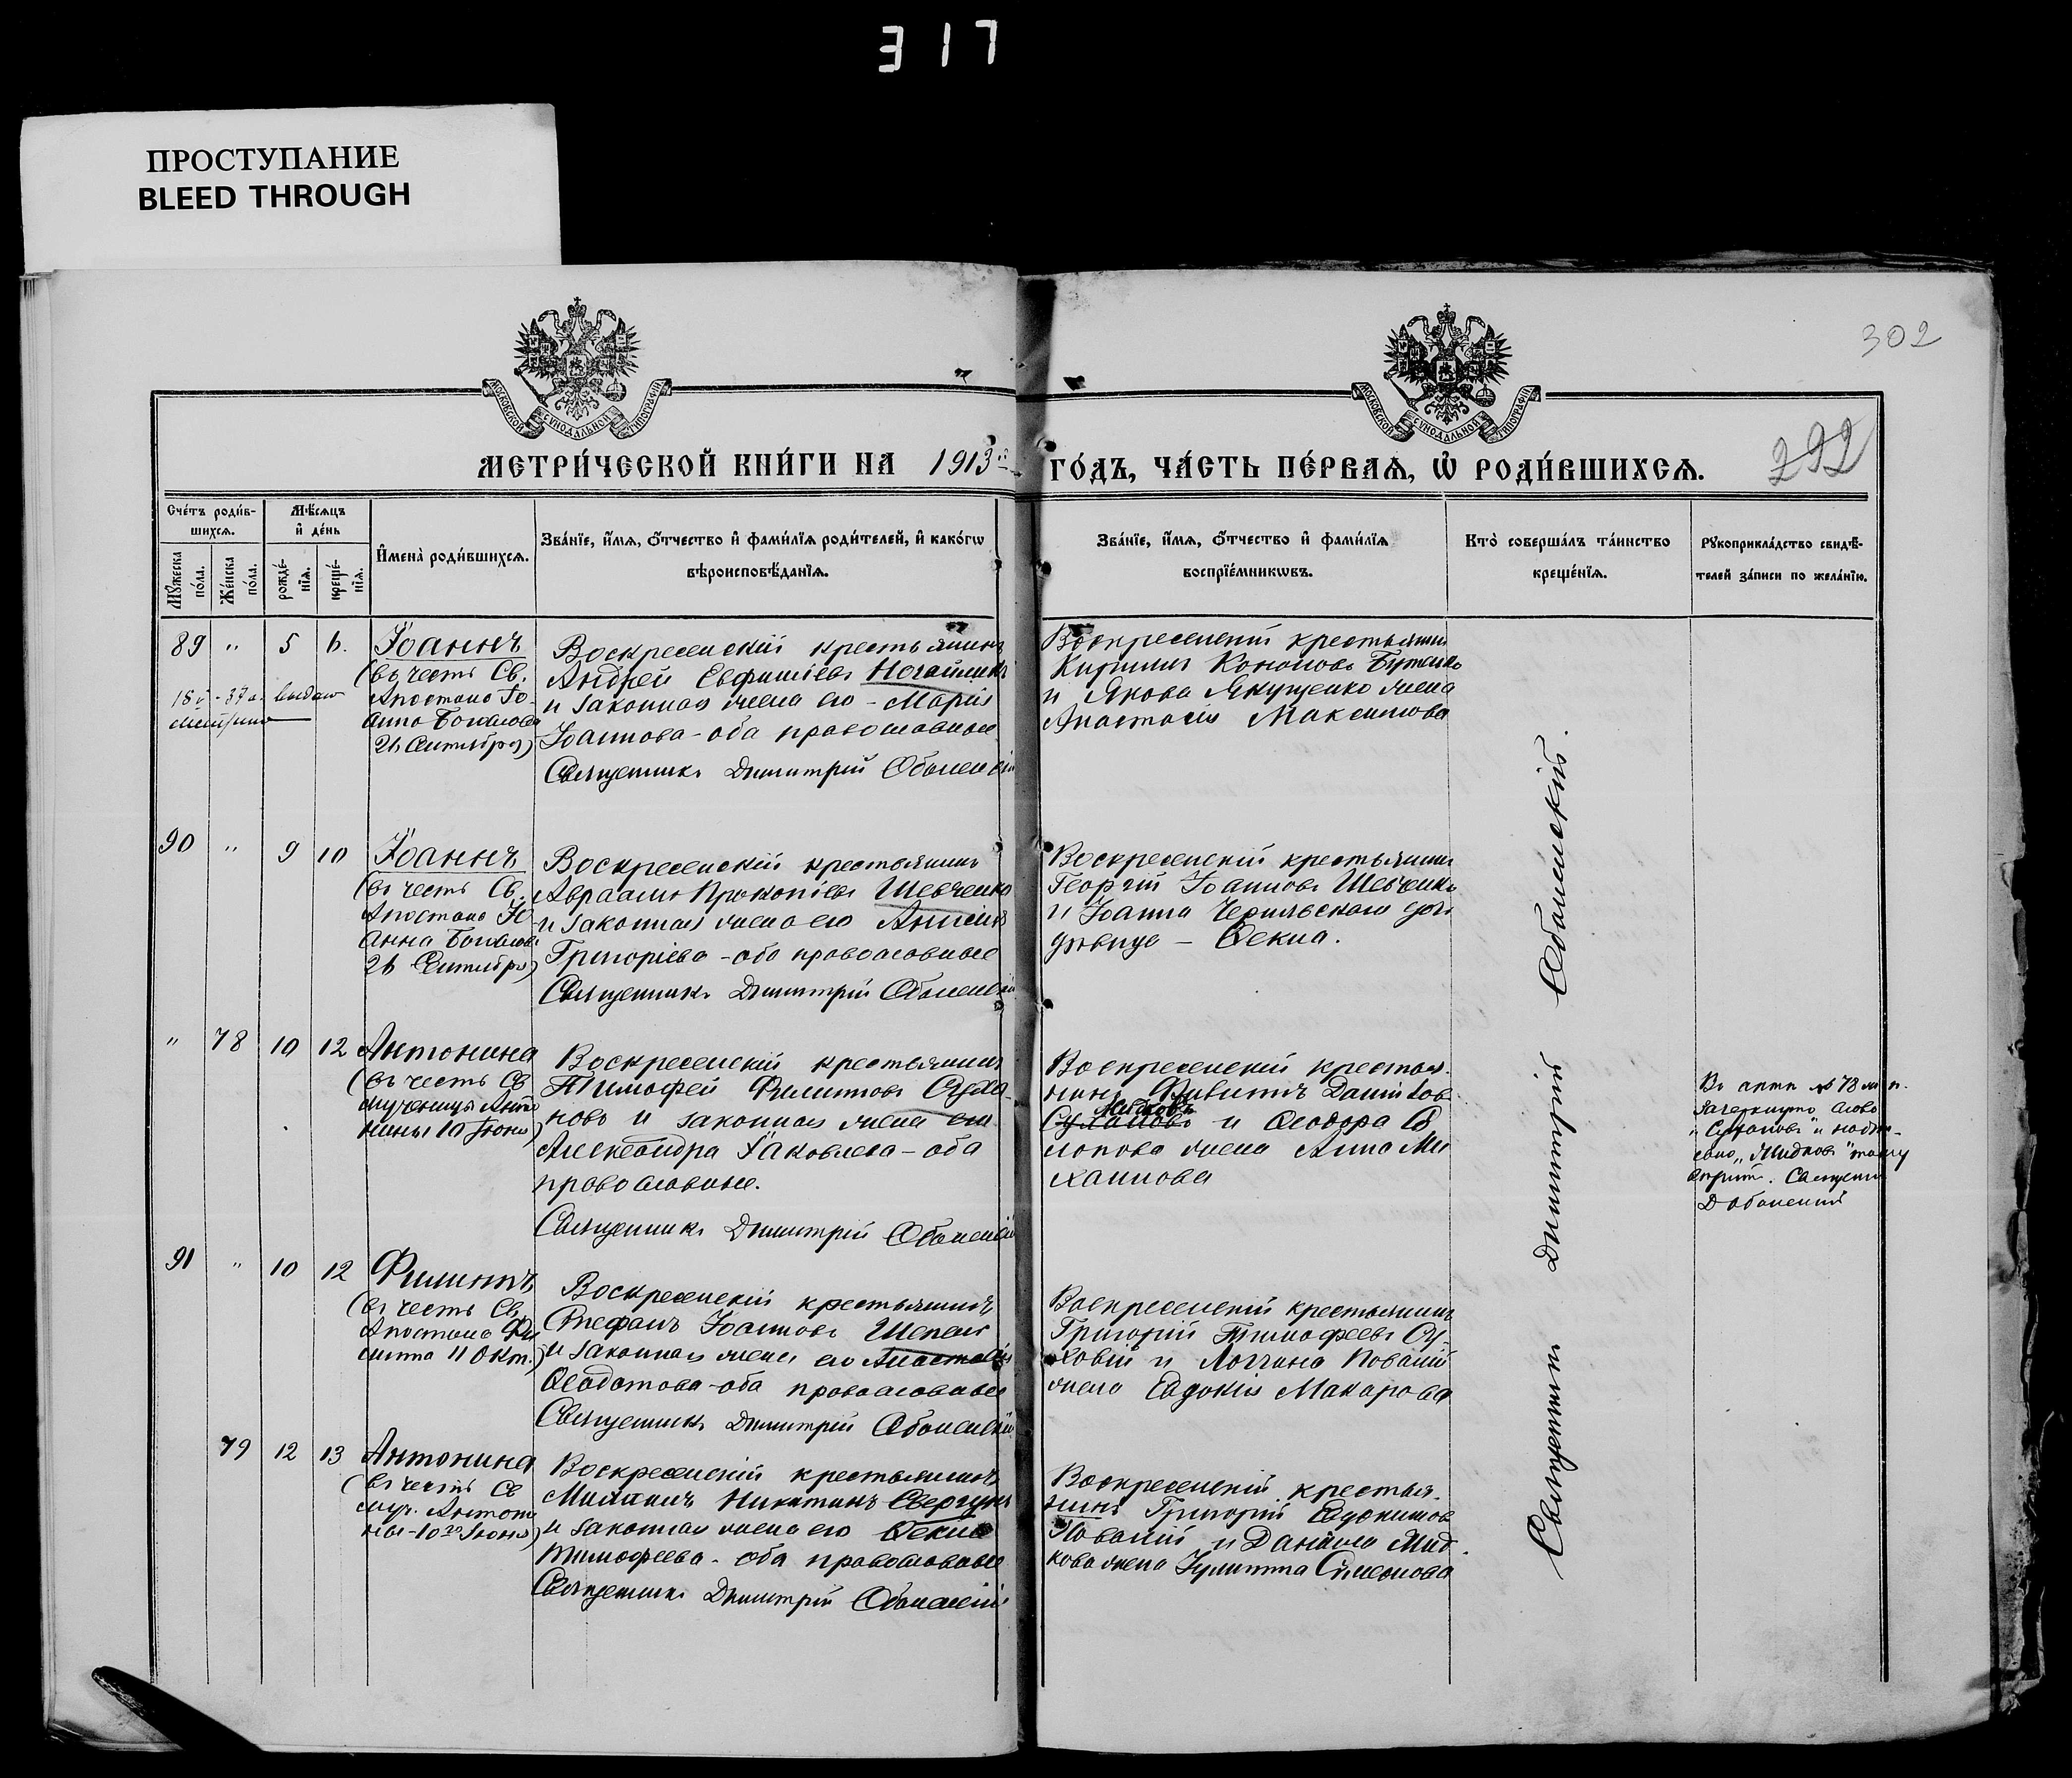 317
ПРОСТУПАНИЕ
BLEED THROUGH
302
292
МОСКОВСКОЙ СѴНОДАЛЬНОЙ ТИПОГРАФІИ
МОСКОВСКОЙ СѴНОДАЛЬНОЙ ТИПОГРАФІИ
МЕТРИ́ЧЕСКОЙ КНИ́ГИ НА 1913 ГО́ДЪ, ЧА́СТЬ ПЕ́РВАѦ, Ѡ҆ РОДИ́ВШИХСѦ.
Сче́тъ роди́в-
шихсѧ.
Мꙋ́жеска по́ла.
Же́нска по́ла.
Мѣ́сѧцъ
и҆ де́нь
рожде́-
нїѧ.
креще́-
нїѧ.
И҆мена̀ роди́вшихсѧ.
Зва́нїе, и҆́мѧ, ѻ҆́тчество и҆ фами́лїѧ роди́телей, и҆ како́гѡ
вѣроисповѣ́данїѧ.
Зва́нїе, и҆́мѧ, ѻ҆́тчество и҆ фами́лїѧ
воспрїе́мникѡвъ.
Кто̀ соверша́лъ та́инство
креще́нїѧ.
Рꙋкоприкла́дство свидѣ́-
телей за́писи по жела́нїю.
89 " 5 6.
Іоаннъ
(въ честь Св.
Апостола Іо
анна Богослова
26 Сентября)
Воскресенскій крестьянинъ
Андрей Евфиміевъ
и законная жена его - Марія
Іоаннова - оба православные
Священникъ Димитрій Оболенскій
Воскресенскій крестьянинъ
Кириллъ Кононовъ Бутенко
и Якова Якущенко жена
Анастасія Максимова
90 " 9 10
Іоаннъ
(въ честь Св.
Апостола Іо
анна Богослова
26 Сентября)
Воскресенскій крестьянинъ
Авраамъ Прокопіевъ Шевченко
и законная жена его Анисія
Григоріева - оба православные
Священникъ Димитрій Оболенскій
Воскресенскій крестьянинъ
Георгій Іоанновъ Шевченко
и Іоанна
дѣвица - Ѳекла.
" 78 10 12
Антонина
(въ честь Св
мученицы Анто
нины 10 Іюня)
Воскресенскій крестьянинъ
Тимофей Филипповъ Суха-
новъ и законная жена его
Александра Іаковлева - оба
православные.
Священникъ Димитрій Оболенскій
Воскресенскій крестья-
нинъ Даніиловъ
Мидковъ
Сухановъ и Ѳеодора
жена Анна Ми
хаилова
Въ актѣ № 78 ж. п.
зачеркнуто слово
"Сухановъ" и надпи-
сано "Мидковъ" тому
вѣрить. Священник
Д Оболенскій
91 " 10 12
Филиппъ
(въ честь Св
Апостола Фи
липпа 11 Окт.)
Воскресенскій крестьянинъ
Стефанъ Іоанновъ Шепель
и законная жена его Анастасія
Ѳеодотова - оба православные
Священникъ Димитрій Оболенскій
Воскресенскій крестьянинъ
Григорій Тимофеевъ Су-
ховій и Логгина Пованій
жена Евдокія Макарова
79 12 13
Антонина
(въ честь Св
муч. Антони
ны - 10го Іюня)
Воскресенскій крестьянинъ
Михаилъ Никитинъ Свергунъ
и законная жена его Ѳекла
Тимофеева - оба православные
Священникъ Димитрій Оболенскій
Воскресенскій крестья-
нинъ Григорій Евдокимовъ
Пованій и Даніила Мид-
кова жена Іулитта Симеонова
Священникъ Димитрій Оболенскій.